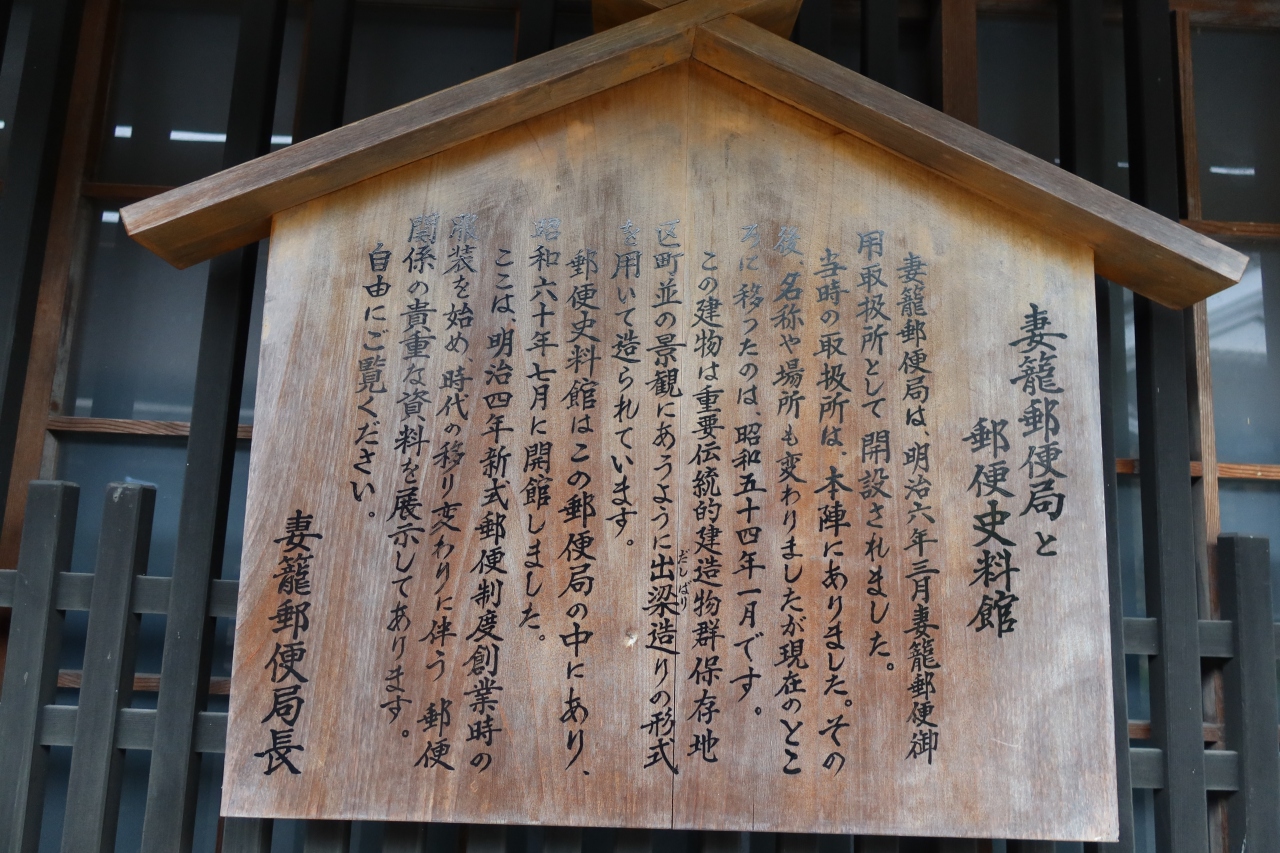 妻籠郵便局と
郵便史料館
妻籠郵便局は、明治六年三月妻籠郵便御
用取扱所として開設されました。
当時の取扱所は、本陣にありました。その
後 名称や場所も変わりましたが現在のとこ
ろに移ったのは、昭和五十四年一月です。
この建物は重要伝統的建造物群保存地
区町並の景観にあうように出梁造りの形式
だしばり
を用いて造られています。
郵便史料館はこの郵便局の中にあり、
昭和六十年七月に開館しました。
ここは、明治四年新式郵便制度創業時の
服装を始め、時代の移り変わりに伴う 郵便
関係の貴重な資料を展示してあります。
自由にご覧ください。
妻籠郵便局長